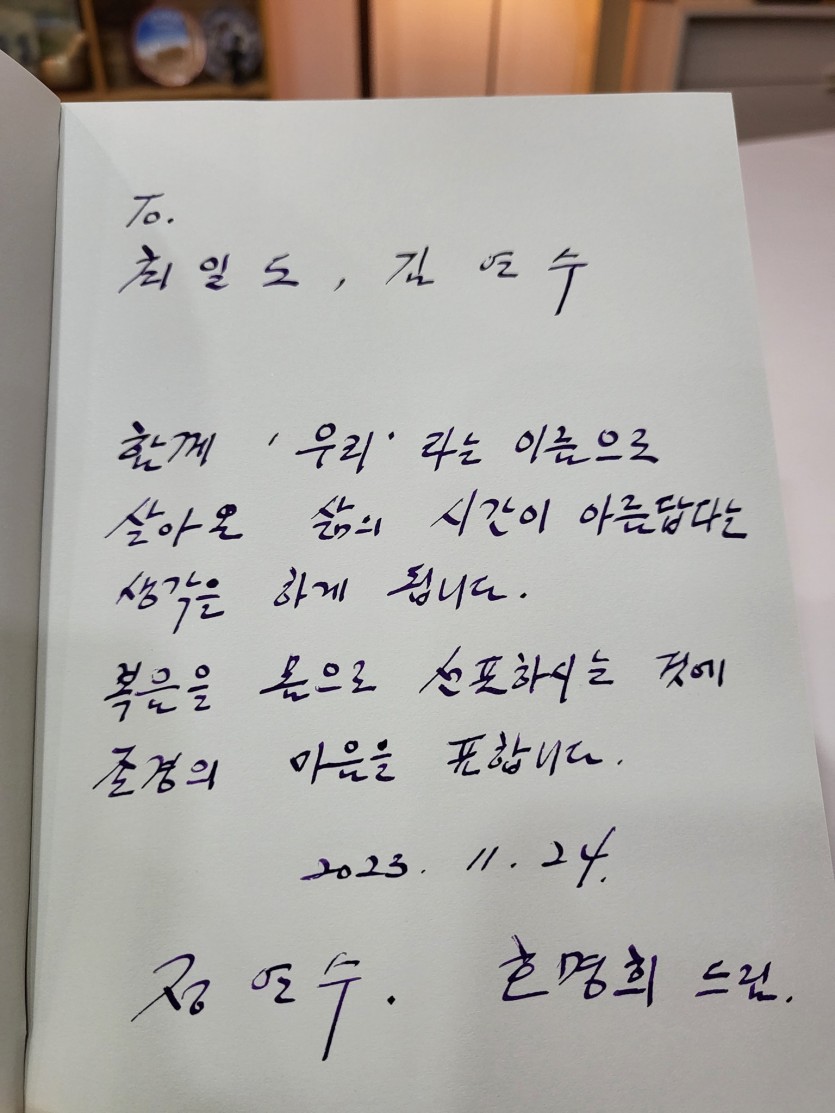 To.
최일도, 김연수
함께 '우리' 라는 이름으로
살아온 삶의 시간이 아름답다는
생각을 하게 됩니다.
복음을 몸으로 선포하시는 것에
존경의 마음을 표합니다.
2023. 11. 24.
정연수. 한명희 드림.